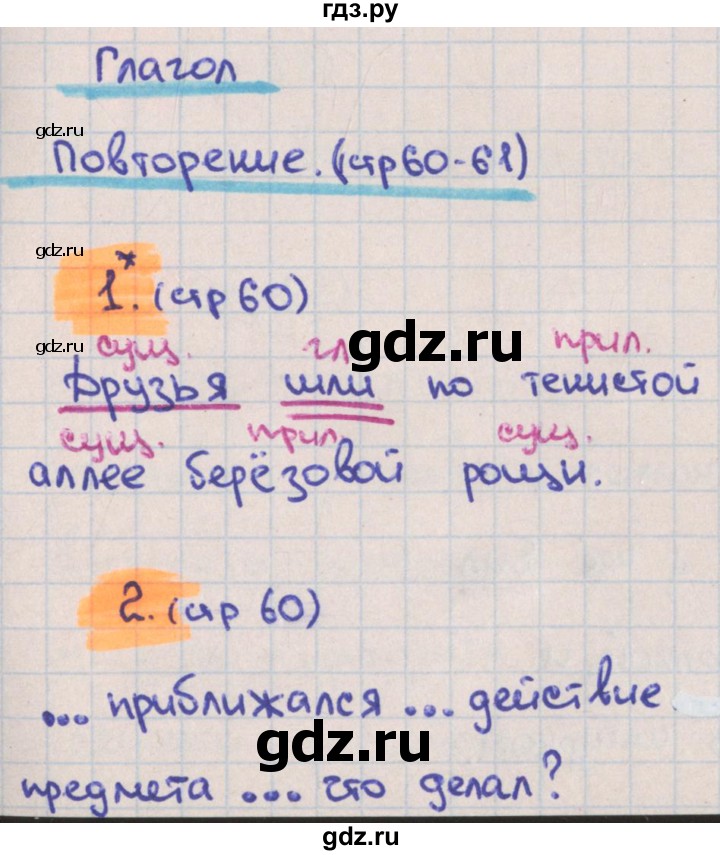 гдз.ру
Глагол
gdz.ru
Повторение. (стр 60-61)
gdz.ru
1.* (стр 60)
gdz.ru
gdz.ru
сущ. гл прил.
Друзья шли по тенистой
сущ. прил. сущ.
аллее берёзовой рощи.
2. (стр 60)
... приближался ... действие
gdz.ru
предмета ... что делал?
gdz.ru